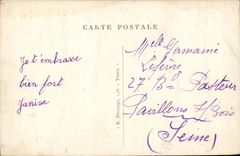 CARTE POSTALE
Je t'embrasse
bien fort
Janine
Melle Germaine
Lefèvre
27 Bd Pasteur
Pavillons s/Bois
(Seine)